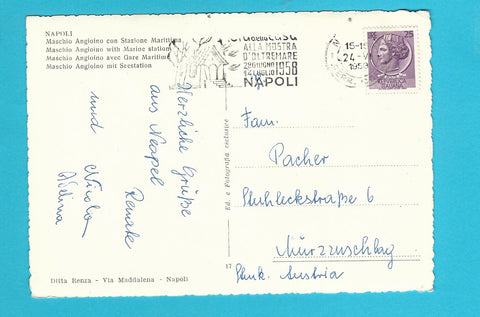 NAPOLI
Maschio Angioino con Stazione Marittima
Maschio Angioino with Marine station
Maschio Angioino avec Gare Maritime
Maschio Angioino mit Seestation
CASA
ALLA MOSTRA
D'OLTREMARE
28 GIUGNO
14 LUGLIO 1958
NAPOLI
15-15
24-V
195
25
Herzliche Grüße
aus Neapel
Renate
und Nicola
Fam.
Pacher
Stuhleckstraße 6
Mürzzuschlag
Stmk. Austria
Ed. e Fotografia esclusive
17
Ditta Renza - Via Maddalena - Napoli